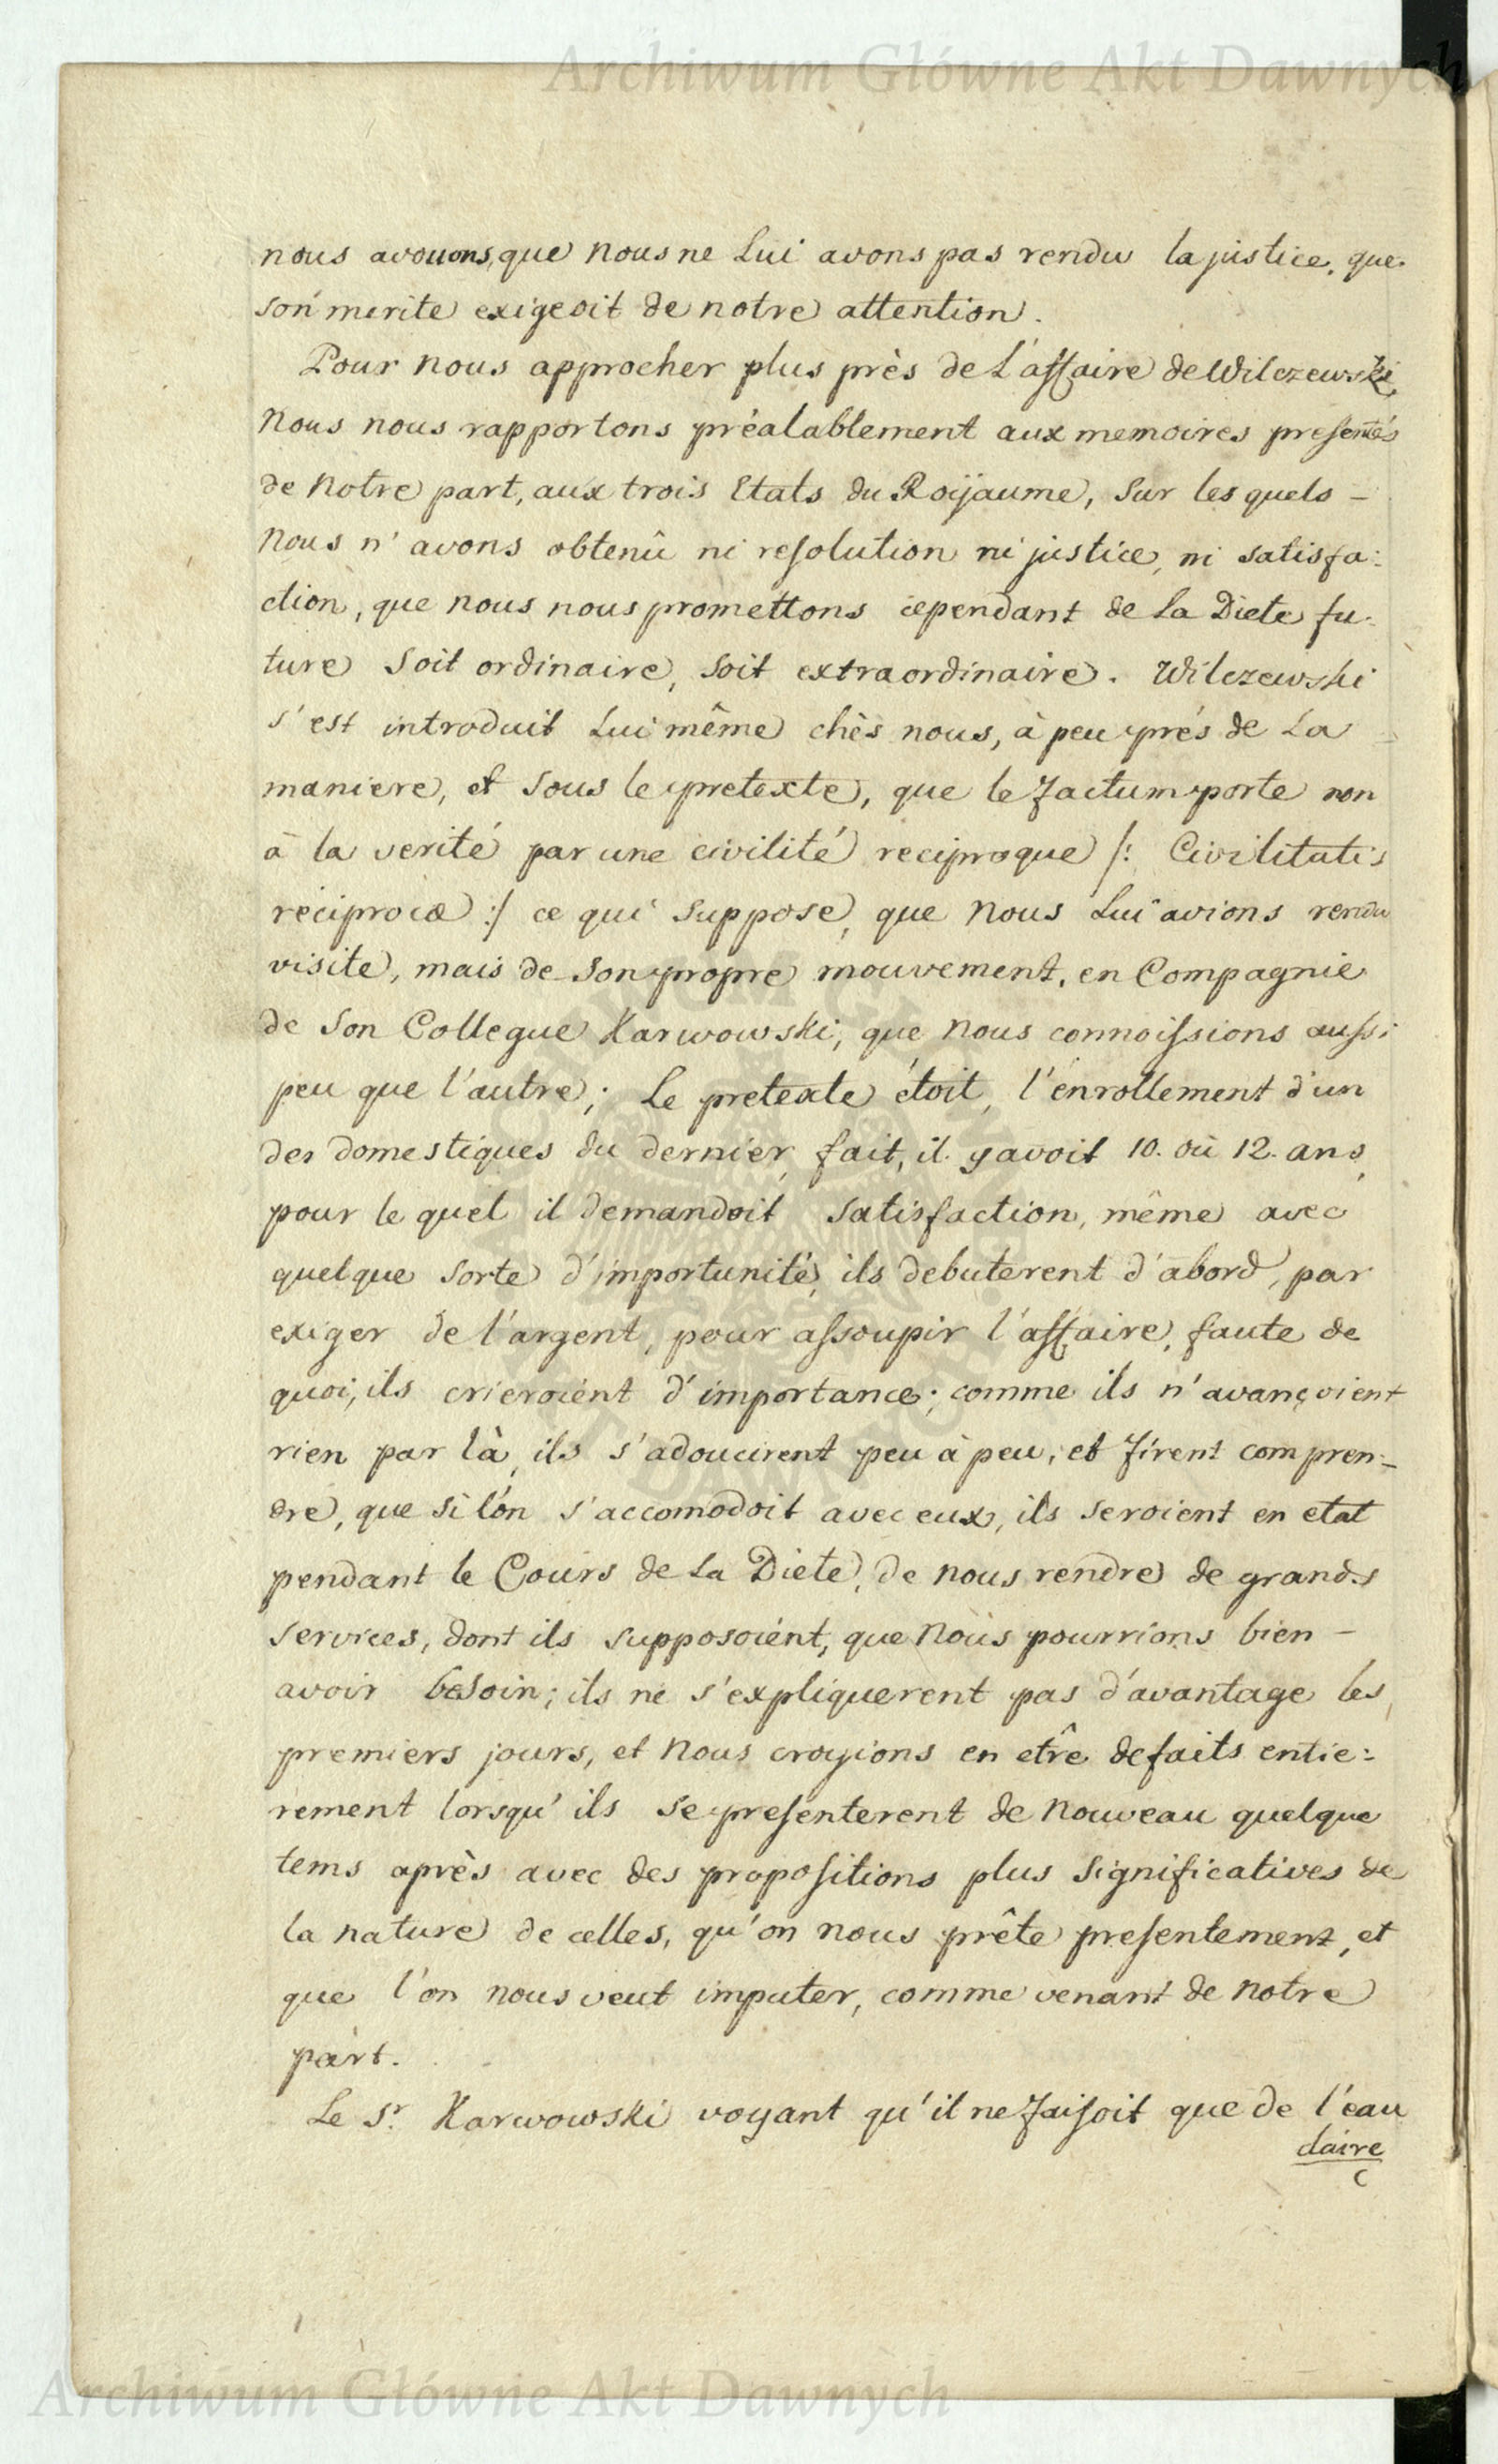 Archiwum Główne Akt Dawnych
nous avouons, que nous ne Lui avons pas rendu la justice, que
son merite exigeoit de notre attention.
Pour nous approcher plus près de L'affaire de Wilczewski,
nous nous rapportons préalablement aux memoires presentés
de notre part, aux trois Etats du Roÿaume, sur les quels –
nous n'avons obtenû ni resolution ni justice, ni satisfa:
ction, que nous nous promettons cependant de la Diete fu:
ture soit ordinaire, soit extraordinaire. Wilczewski
s'est introduit Lui même chès nous, à peu prés de La
maniere, et sous le pretexte, que le factum porte non
à la verité par une civilité reciproque /: Civilitatis
reciprocæ :/ ce qui suppose, que nous Lui avions rendu
visite, mais de son propre mouvement, en Compagnie
de son Collegue Karwowski, que nous connoissions aussi
peu que l'autre; Le pretexte étoit, l'enrollement d'un
des domestiques du dernier, fait, il y avoit 10. où 12. ans,
pour le quel il demandoit satisfaction, même avec
quelque sorte d'importunité, ils debuterent d'abord, par
exiger de l'argent, pour assoupir l'affaire, faute de
quoi, ils crieroient d'importance; comme ils n'avançoient
rien par là, ils s'adoucirent peu à peu, et firent compren:
dre, que si l'on s'accomodoit avec eux, ils seroient en etat
pendant le Cours de La Diete, de nous rendre de grands
services, dont ils supposoient, que nous pourrions bien –
avoir besoin; ils ne s'expliquerent pas d'avantage les
premiers jours, et nous croyions en etre defaits entie:
rement lorsqu'ils se presenterent de nouveau quelque
tems après avec des propositions plus significatives de
la nature de celles, qu'on nous prête presentement, et
que l'on nous veut imputer, comme venant de notre
part.
Le Sr. Karwowski voyant qu'il ne faisoit que de l'eau
claire
Archiwum Główne Akt Dawnych